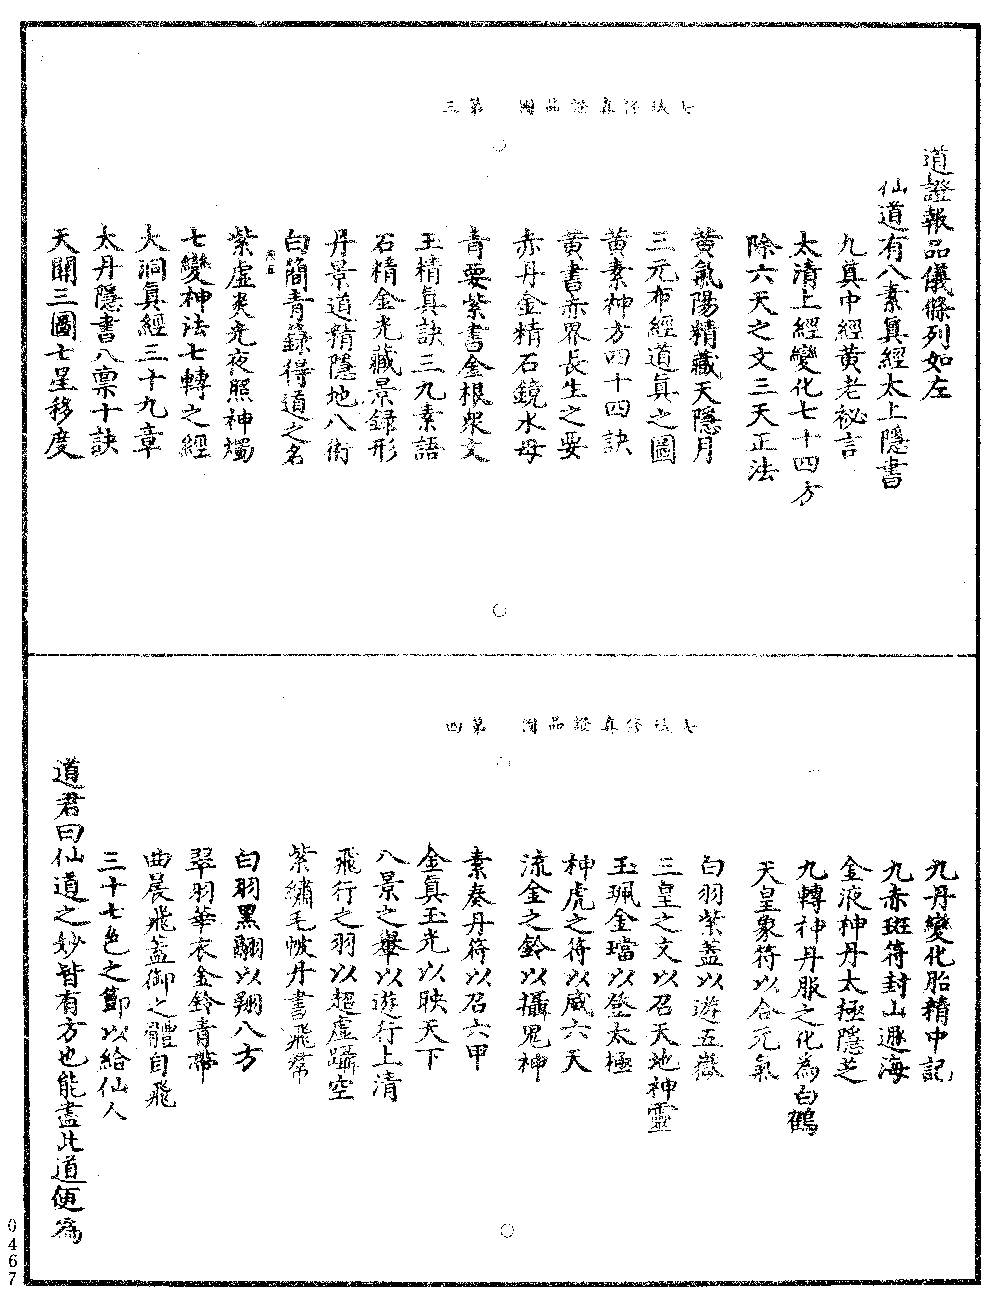 第三
道證報品儀條列如左
仙道有八素真經太上隱書
九真中經黃老祕言
太清上經變化七十四方
除六天之文三天正法
黃氣陽精藏天隱月
三元布經道真之圖
黃素神方四十四訣
黃書赤界長生之要
赤丹金精石鏡水母
青要紫書金根眾文
玉精真訣三九素語
石精金光藏景錄形
丹景道精隱地八術
白簡青籙得道之名
紫虛夾光夜照神燭
七變神法七轉之經
大洞真經三十九章
太丹隱書八稟十訣
天關三圖七星移度
第四
九丹變化胎精中記
九赤班符封山遯海
金液神丹太極隱芝
九轉神丹服之化為白鶴
天皇象符以合元氣
白羽紫蓋以遊五嶽
三皇之文以召天地神靈
玉珮金璫以登太極
神虎之符以威六天
流金之鈴以攝鬼神
素奏丹符以召六甲
金真玉光以映天下
八景之轝以遊行上清
飛行之羽以超虛躡空
紫繡毛帔丹書飛帬
白羽黑翮以翔八方
翠羽華衣金鈴青帶
曲晨飛蓋御之體自飛
三十七色之節以給仙人
道君曰仙道之妙皆有方也能盡此道便為
0467